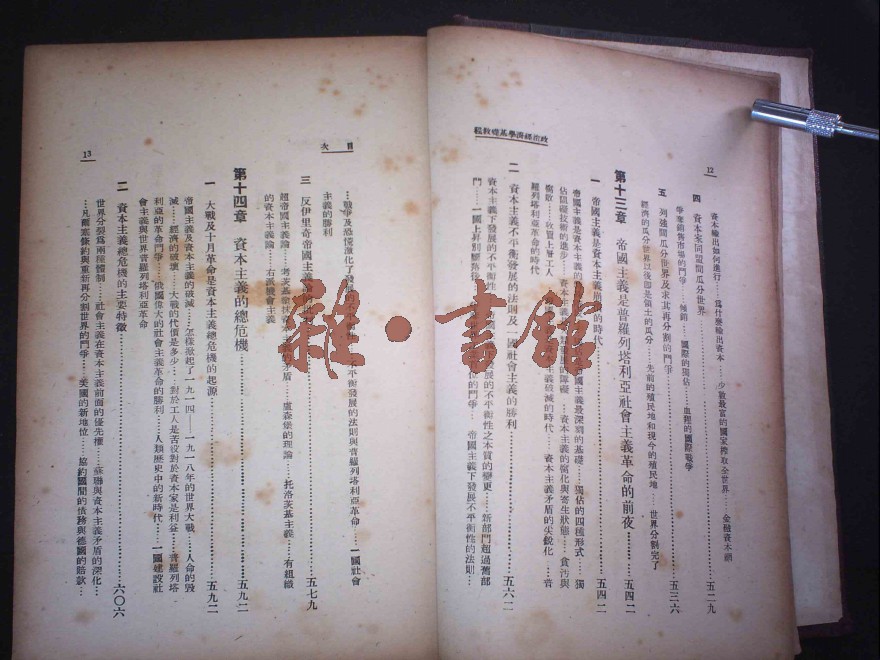 政治經濟學基礎教程
12
資本輸出如何進行……爲什麼輸出資本……少數最富的國家榨取全世界……金融資本網
……五二九
四 資本家同盟間瓜分世界
爭奪銷售市場的鬥爭……傾銷……國際的獨佔……血裡的國際戰爭
……五三六
五 列強間瓜分世界及求其再分割的鬥爭
經濟的瓜分世界以後即是領土的瓜分……先前的殖民地和現今的殖民地……世界分割完了
第十三章 帝國主義是普羅列塔利亞社會主義革命的前夜……五四二
一 帝國主義是資本主義崩潰的時代……五四二
帝國主義是資本主義的 國主義最深刻的基礎……獨佔的四種形式……獨
佔阻礙技術的進步……資本主義 的障礙……資本主義的腐化與寄生狀態……貪污與
腐敗……收買上層工人 資本主義破滅的時代……資本主義矛盾的尖銳化……普
羅列塔利亞革命的時代
二 資本主義不平衡發展的法則及一國社會主義的勝利……五六二
資本主義下發展的不平衡性 發展的不平衡性之本質的變更……新部門超過舊部
門……一國上昇別國落後 的鬥爭……帝國主義下發展不平衡性的法則……
目次
13
……戰爭及恐慌激化了 不平衡發展的法則與普羅列塔利亞革命……一國社會
主義的勝利
三 反伊里奇帝國主義 ……五七九
超帝國主義論……考茨基 資本主義的矛盾……盧森堡的理論……托洛茨基主義……有組織
的資本主義論……右派機會主義
第十四章 資本主義的總危機……五九二
一 大戰及十月革命是資本主義總危機的起源……五九二
帝國主義及資本主義的破滅……怎樣掀起了一九一四——一九一八年的世界大戰……人命的毀
滅……經濟的破壞……大戰的代價是多少……對於工人是苦役對於資本家是利益……普羅列塔
利亞的革命鬥爭……俄國偉大的社會主義革命的勝利……人類歷史中的新時代……一國建設社
會主義與世界普羅列塔利亞革命
二 資本主義總危機的主要特徵……六〇六
世界分裂爲兩種體制……社會主義在資本主義前面的優先權……蘇聯與資本主義矛盾的深化…
…凡爾塞條約與重新再分割世界的鬥爭……美國的新地位……協約國間的債務與德國的賠款…
雜·書館